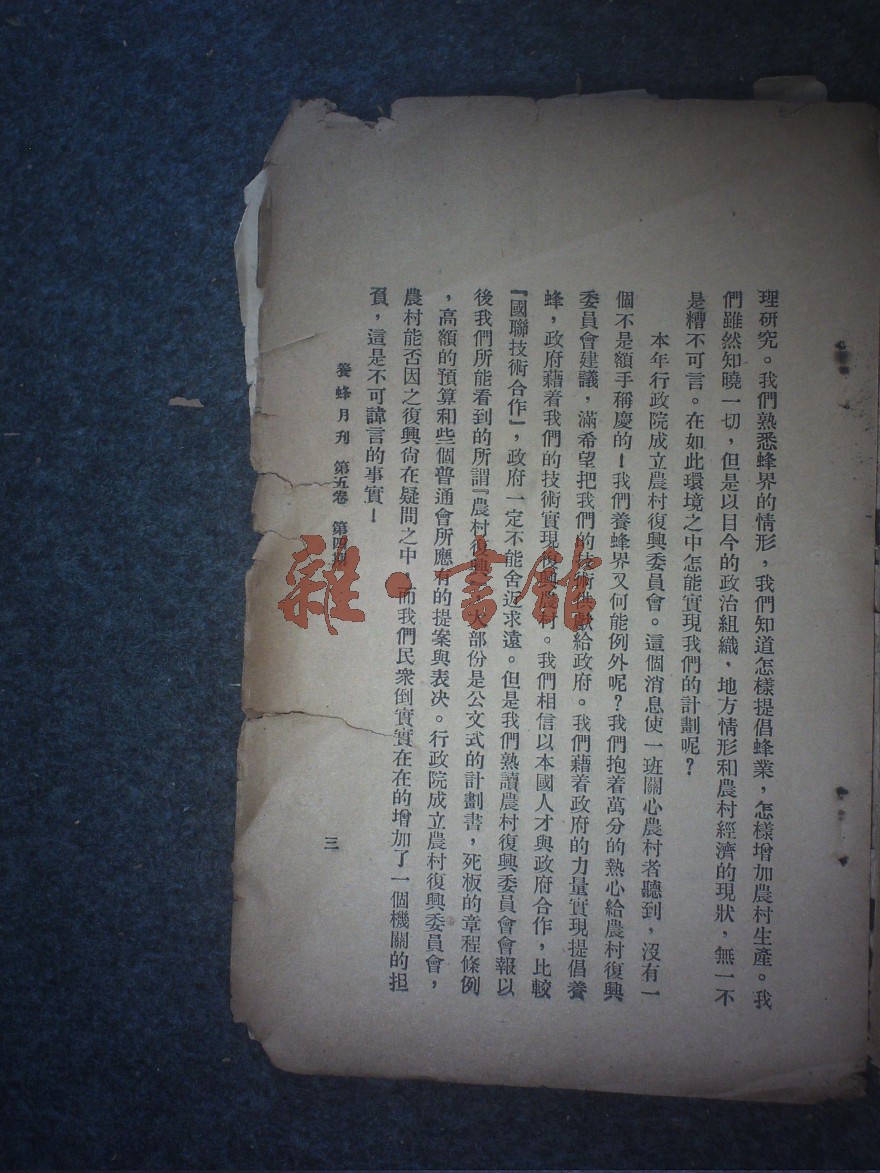 理研究。我們熟悉蜂界的情形，我們知道怎樣提倡蜂業，怎樣增加農村生產。我
們雖然知曉一切，但是以目今的政治組織、地方情形和農村經濟的現狀，無一不
是糟不可言。在如此環境之中怎能實現我們的計劃呢？
本年行政院成立農村復興委員會。這個消息使一班關心農村者聽到，沒有一
個不是額手稱慶的！我們養蜂界又何能例外呢？我們抱着萬分的熱心給農村復興
委員會建議，滿希望把我們的技術供獻給政府。我們藉着政府的力量實現提倡養
蜂，政府藉着我們的技術實現復興農村。我們相信以本國人才與政府合作，比較
『國聯技術合作』，政府一定不能舍近求遠。但是我們熟讀農村復興委員會會報以
後我們所能看到的所謂『農村復興』大部份是公文式的計劃書，死板的章程條例
，高額的預算和些個普通會所應有的提案與表决。行政院成立農村復興委員會，
農村能否因之復興尙在疑問之中，而我們民衆倒實實在在的增加了一個機關的担
負，這是不可諱言的事實！
養蜂月刊 第五卷 第四期
三
雜·書館